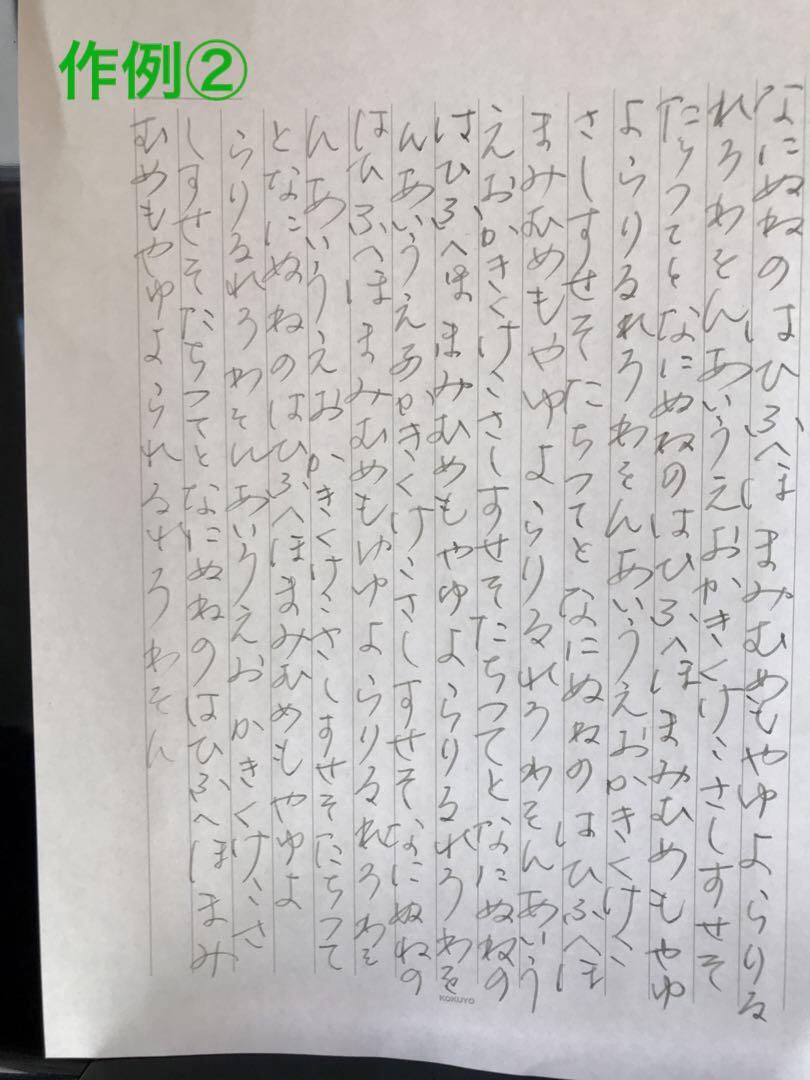 作例②
なにぬねのはひふへほまみむめもやゆよらりる
れろわそんあいうえおかきくけこさしすせそ
たちつてとなにぬねのはひふへほまみむめもやゆ
よらりるれろわそんあいうえおかきくけこ
さしすせそたちつてとなにぬねのはひふへほ
まみむめもやゆよらりるれろわそんあいう
えおかきくけこさしすせそたちつてとなにぬねの
はひふへほまみむめもやゆよらりるれろわを
んあいうえおかきくけこさしすせそなにぬねの
はひふへほまみむめもやゆよらりるれろわを
んあいうえおかきくけこさしすせそたちつて
となにぬねのはひふへほまみむめもやゆよ
らりるれろわそんあいうえおかきくけこさ
しすせそたちつてとなにぬねのはひふへほまみ
むめもやゆよられるれろわそん
KOKUYO